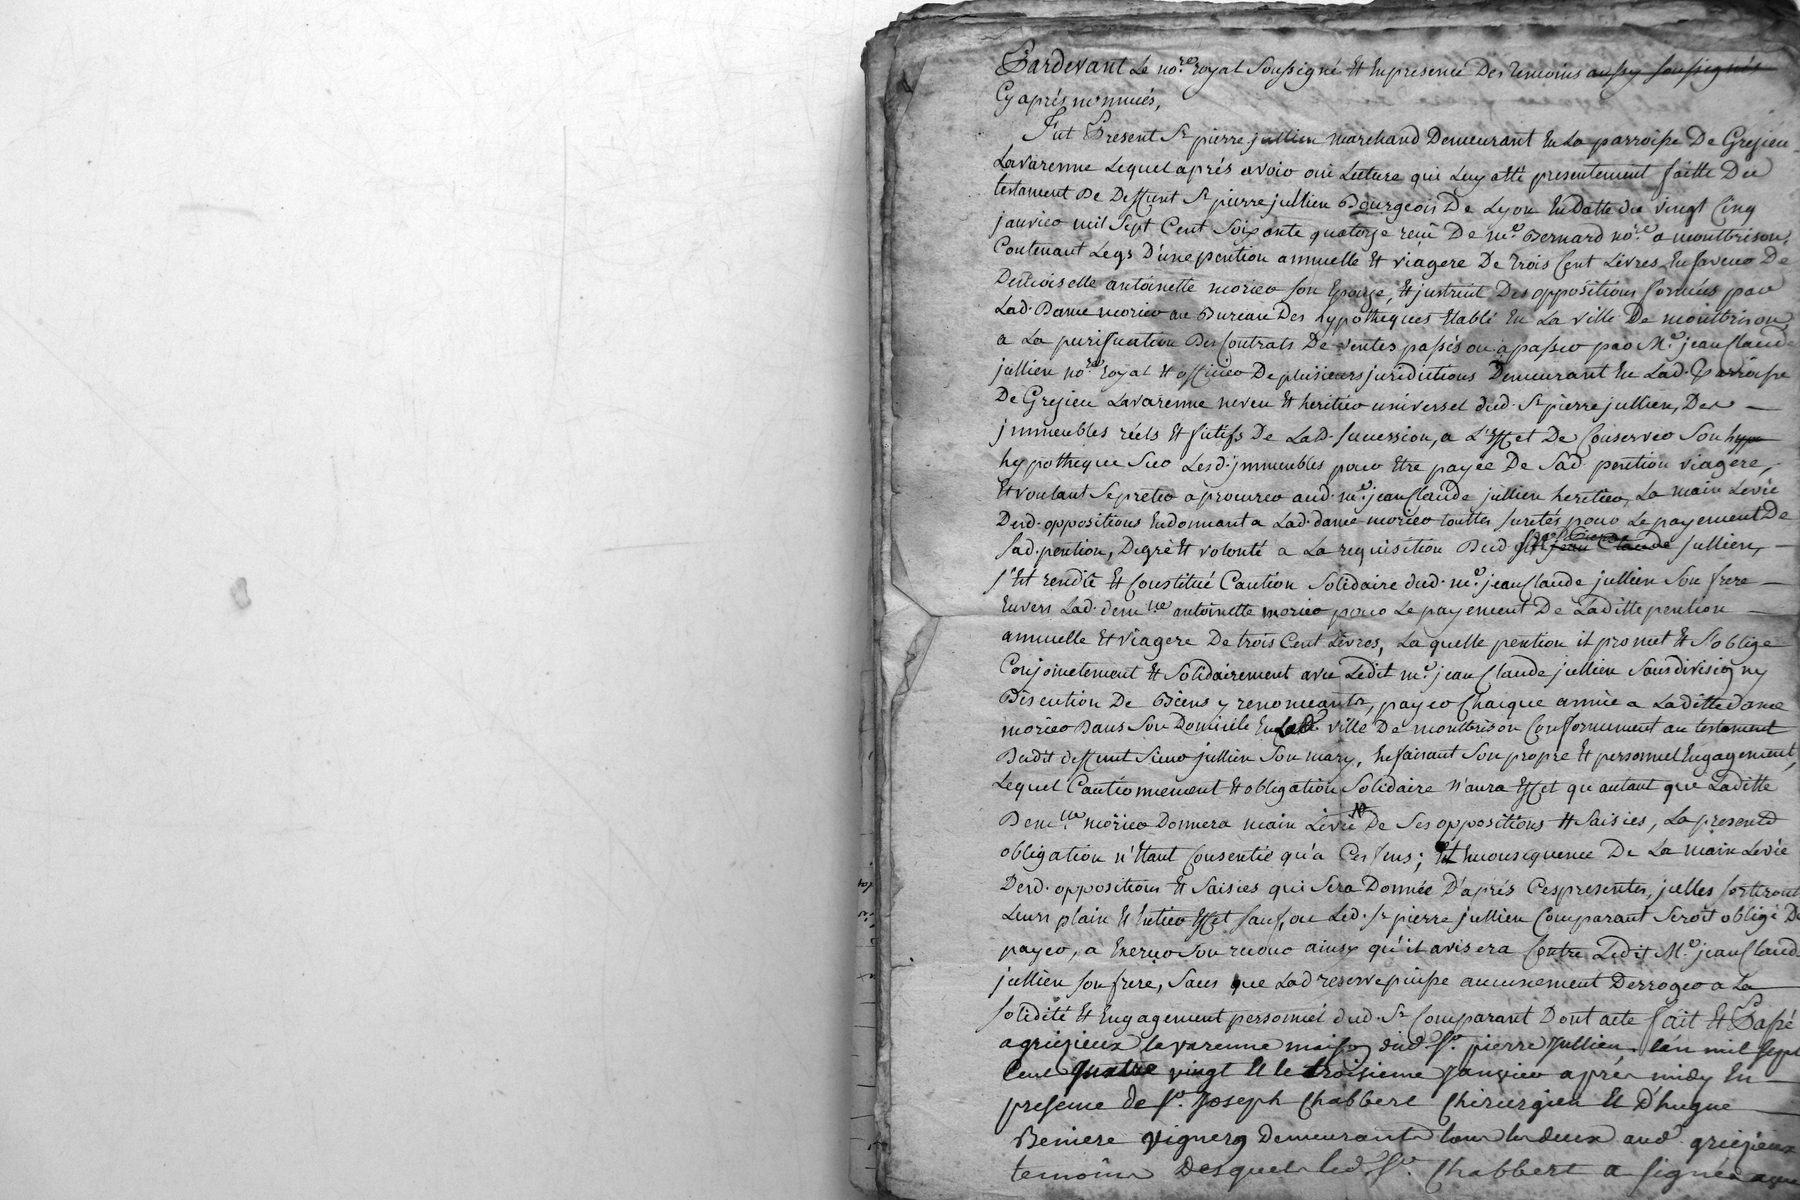 Pardevant Le no.re royal Soussigné Et En presence Des temoins aussy soussignés
Cy aprés nommés,
Fut Present Sr pierre jullien marchand Demeurant En La parroisse De Grezieu
Lavarenne Lequel aprés avoir oui Lecture qui Luy a été presentement faitte Du
testament De Deffunt Sr pierre jullien Bourgeois De Lyon En Datte du vingt Cinq
janvier mil Sept Cent Soixante quatorze reçu De me Bernard no.re a montbrison,
Contenant Legs D'une pention annuelle Et viagere De trois Cent Livres En faveur De
Demoiselle antoinette morier son Epouse, Et instruit Des oppositions formées par
Lad. Dame morier au Bureau Des hypotheques Etabli En La ville De montbrison,
a La purification Des Contrats De ventes passés ou à passer par Me jean Claude
jullien no.re royal Et officier De plusieurs juridictions Demeurant En Lad. Parroisse
De Grezieu Lavarenne neveu Et heritier universel dud. Sr pierre jullien, Des
jmmeubles réels Et fictifs De Lad. succession, a L'Effet De Conserver Son hyp
hypotheque Sur Lesd. jmmeubles pour Etre payée De Sad. pention viagere,
Et voulant Se prêter à procurer aud. me jean Claude jullien heritier, La main Levée
Desd. oppositions En donnant a Lad. dame morier touttes suretés pour Le payement De
Sad. pention, De gré Et volonté a La requisition Dud. Sr pierre jean Claude jullien,
s'Est rendu Et Constitué Caution Solidaire dud. me jean Claude jullien Son frere
Envers Lad. dem.lle antoinette morier pour Le payement De Laditte pention
annuelle Et viagere De trois Cent Livres, La quelle pention il promet Et S'oblige
Conjointement Et Solidairement avec Ledit me jean Claude jullien Sans division ny
Discution De Biens y renonceants, payer Chaque année a Laditte dame
morier Dans Son Domicile En Lad. ville De montbrison Conformement au testament
Dudit deffunt Sieur jullien Son mary, En faisant Son propre Et personnel Engagement,
Lequel Cautionnement Et obligation Solidaire n'aura Effet qu'autant que Laditte
Dem.lle morier Donnera main Levée De Ses oppositions Et Saisies, La presente
obligation n'Etant Consentie qu'a Ces fins; Et En Consequence De La main Levée
Desd. oppositions Et Saisies qui Sera Donnée D'aprés Ces presentes, jcelles sortiront
Leurs plain Et Entier Effet sauf, ou Led. Sr pierre jullien Comparant Seroit obligé De
payer, a Exercer Son recour ainsy qu'il avisera Contre Ledit Me jean Claude
jullien son frere, Sans que Lad reserve puisse aucunement Derroger a La
solidité Et Engagement personnel dud. Sr Comparant Dont acte fait Et Passé
a griezieux la varenne maison dud. Sr. pierre Jullien. L'an mil Sept
Cent quatre vingt Et le troisieme Janvier après midy En
presence de Sr. Joseph Chabbert Chirurgien Et D'hugue
Beniere Vigneron Demeurants tous les deux aud griezieux
temoins Desquels led. Sr. Chabbert a signé avec